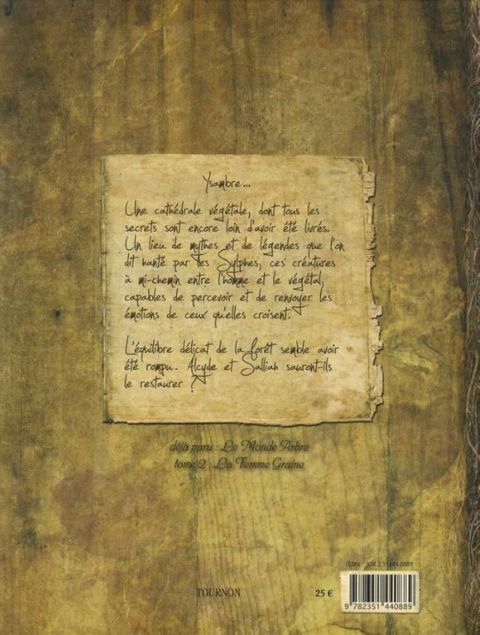 Ysambre...
Une cathédrale végétale, dont tous les
secrets sont encore loin d'avoir été livrés.
Un lieu de mythes et de légendes que l'on
dit hanté par les Sylphes, ces créatures
à mi-chemin entre l'homme et le végétal,
capables de percevoir et de renvoyer les
émotions de ceux qu'elles croisent.
L'équilibre délicat de la forêt semble avoir
été rompu. Alcyde et Salliah sauront-ils
le restaurer ?
déjà paru : Le Monde Arbre
tome 2 : La Femme Graine
ISBN :
TOURNON
25 €
9 782351 440889